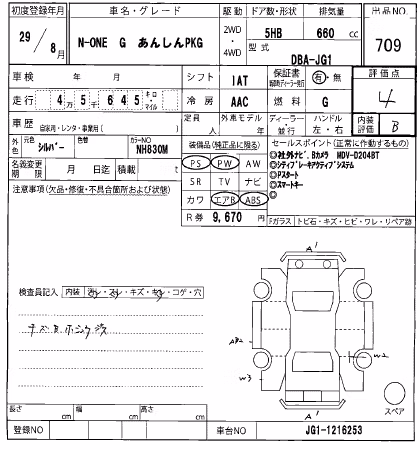 初度登録年月 車名・グレード 駆動 ドア数・形状 排気量 出品NO
29年 8月 N-ONE G あんしんPKG 2WD・4WD 5HB 660 cc 709
型式 DBA-JG1
車検 年 月 シフト IAT 保証書 有・無 評価点 4
走行 4万5千645 キロ・マイル 冷房 AAC 燃料 G
車歴 自家用・レンタ・事業用( ) 定員 人 外車モデル 年 ディーラー 並行 ハンドル 左・右 内装評価 B
外色 元色 シルバー 色替 カラーNO NH830M 装備品(純正品に限る) セールスポイント(正常に作動するもの)
名義変更期限 月 日迄 積載 t PS PW AW ◎社外ナビ、Bカメラ MDV-D204BT
注意事項(欠品・修復・不具合箇所および状態) SR TV ナビ ◎シティブレーキアクティブシステム
◎Pスタート
カワ エアB ABS ◎スマートキー
R券 9,670 円 Fガラス トビ石・キズ・ヒビ・ワレ・リペア跡
A'
検査員記入 内装 汚レ・スレ・キズ・キレ・コゲ・穴
W2
W3
スペア
A'
長さ cm 幅 cm 高さ cm
登録NO 車台NO JG1-1216253